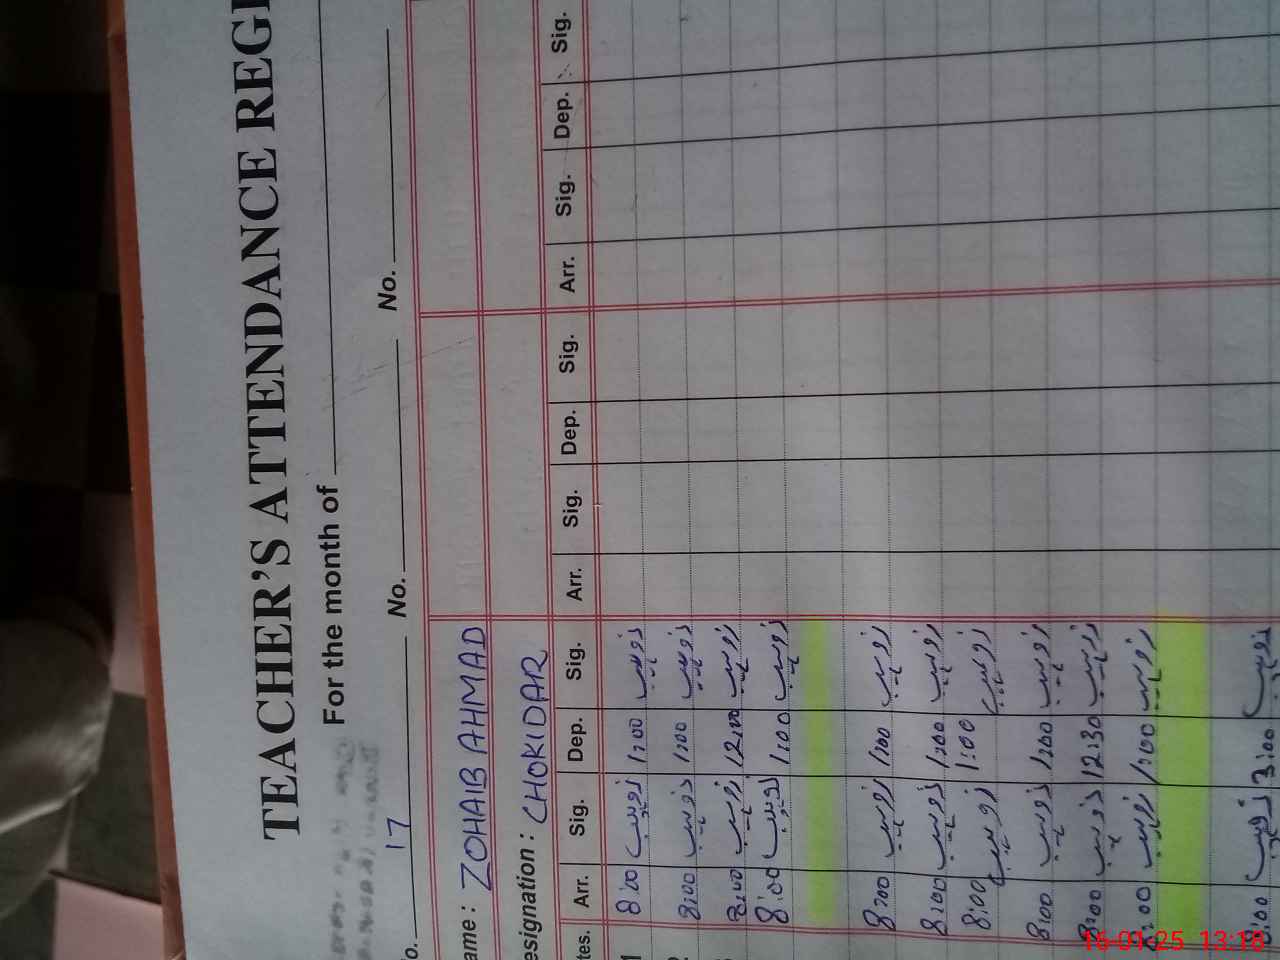 TEACHER'S ATTENDANCE REGI
For the month of
o. 17 No. No.
ame : ZOHAIB AHMAD
esignation : CHOKIDAR
tes. Arr. Sig. Dep. Sig. Arr. Sig. Dep. Sig. Arr. Sig. Dep. Sig.
1 8:00 زوہیب 1:00 زوہیب
2 8:00 زوہیب 1:00 زوہیب
3 8:00 زوہیب 12:00 زوہیب
8:00 زوہیب 1:00 زوہیب
8:00 زوہیب 1:00 زوہیب
8:00 زوہیب 1:00 زوہیب
8:00 زوہیب 1:00 زوہیب
8:00 زوہیب 1:00 زوہیب
8:00 زوہیب 12:30 زوہیب
8:00 زوہیب 1:00 زوہیب
8:00 زوہیب 3:00 زوہیب
16-01-25 13:18